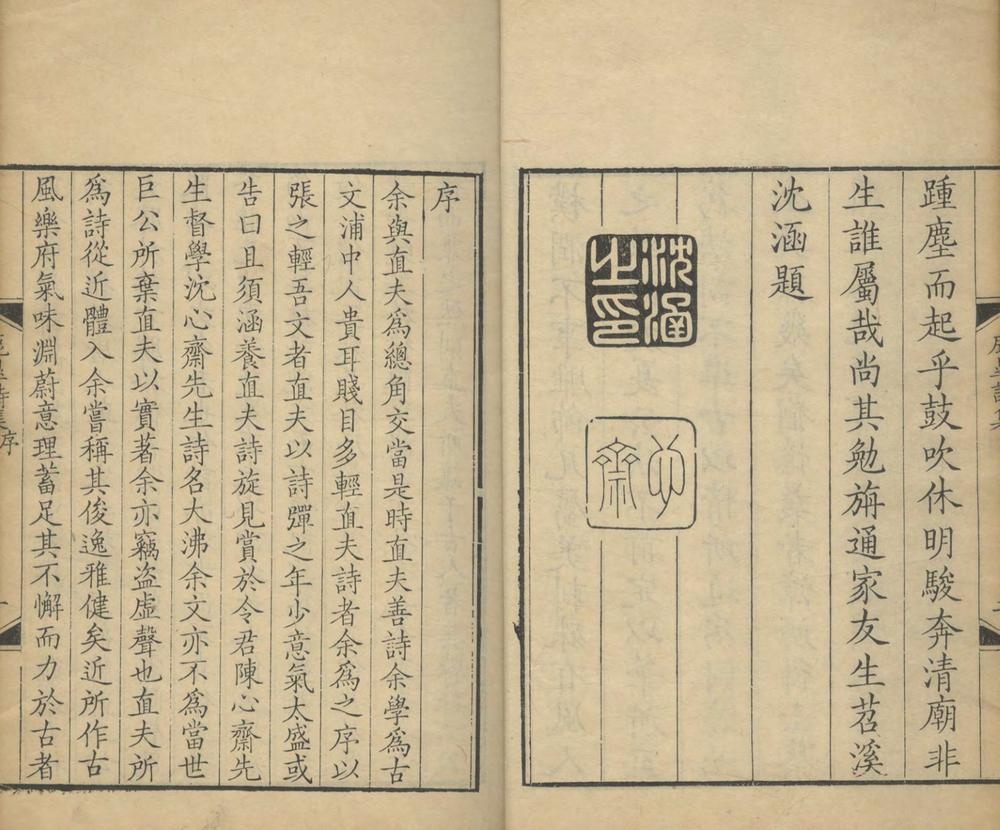 踵塵而起乎鼓吹休明駿奔清廟非
生誰屬哉尚其勉旃通家友生苕溪
沈涵題
沈涵之印
心齋
序
余與直夫爲總角交當是時直夫善詩余學爲古
文浦中人貴耳賤目多輕直夫詩者余爲之序以
張之輕吾文者直夫以詩彈之年少意氣太盛或
告曰且須涵養直夫詩旋見賞於令君陳心齋先
生督學沈心齋先生詩名大沸余文亦不爲當世
巨公所棄直夫以實著余亦竊盜虛聲也直夫所
爲詩從近體入余嘗稱其俊逸雅健矣近所作古
風樂府氣味淵蔚意理蓄足其不懈而力於古者
詩集序